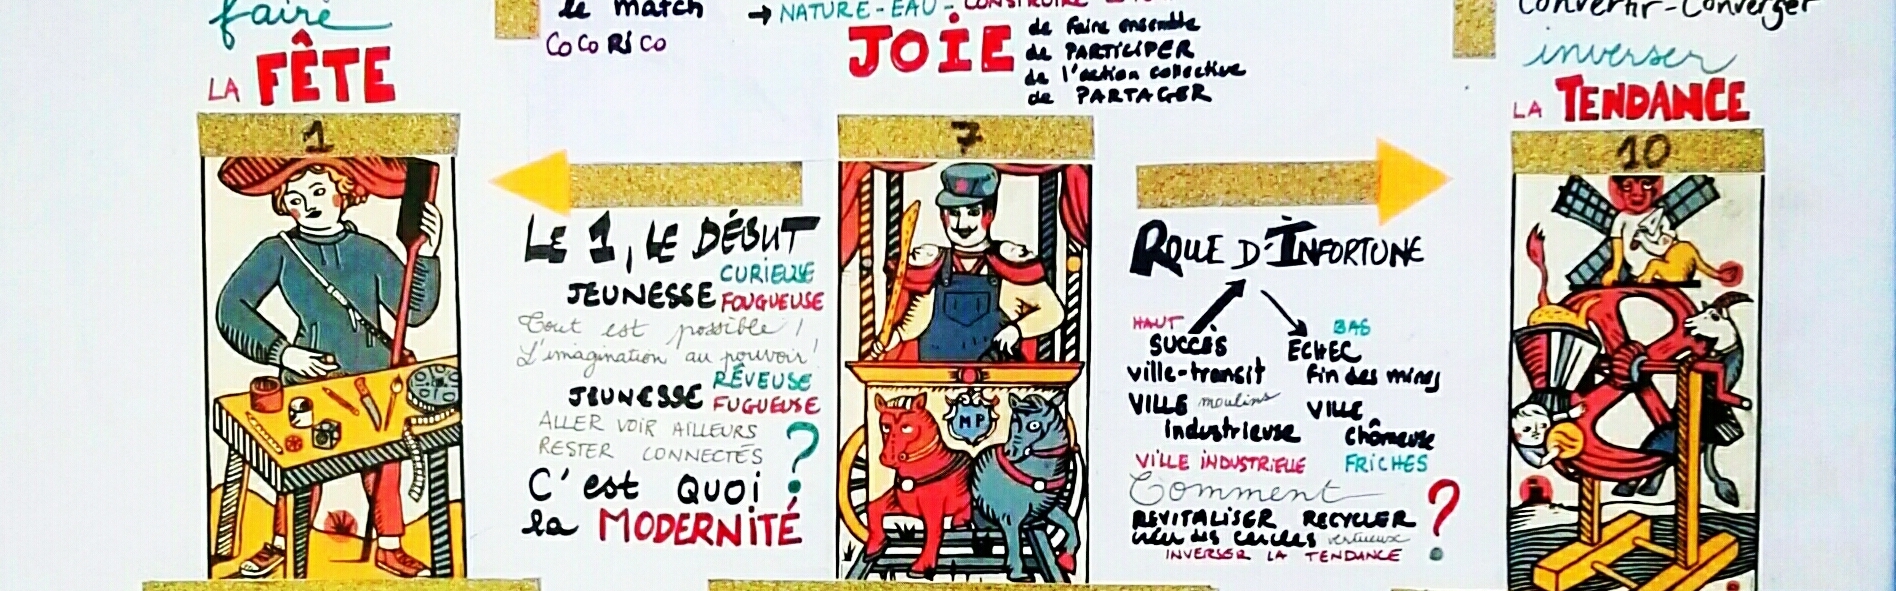 faire
LA FÊTE
1
le match
CoCoRiCo
→ NATURE-EAU-CONSTRUIRE
JOIE
de faire ensemble
de PARTICIPER
de l'action collective
de PARTAGER
7
Convertir-Converger
inverser
LA TENDANCE
10
LE 1, LE DÉBUT
JEUNESSE CURIEUSE
FOUGUEUSE
Tout est possible !
L'imagination au pouvoir !
JEUNESSE RÊVEUSE
FUGUEUSE
ALLER VOIR AILLEURS
RESTER CONNECTÉS ?
C'est QUOI
la MODERNITÉ
MP
ROUE D'INFORTUNE
HAUT
SUCCÈS
ville-transit
VILLE moulins
industrieuse
VILLE INDUSTRIELLE
BAS
ECHEC
fin des mines
VILLE
chômeuse
FRICHES
Comment
REVITALISER RECYCLER
créer des cercles vertueux
INVERSER LA TENDANCE ?